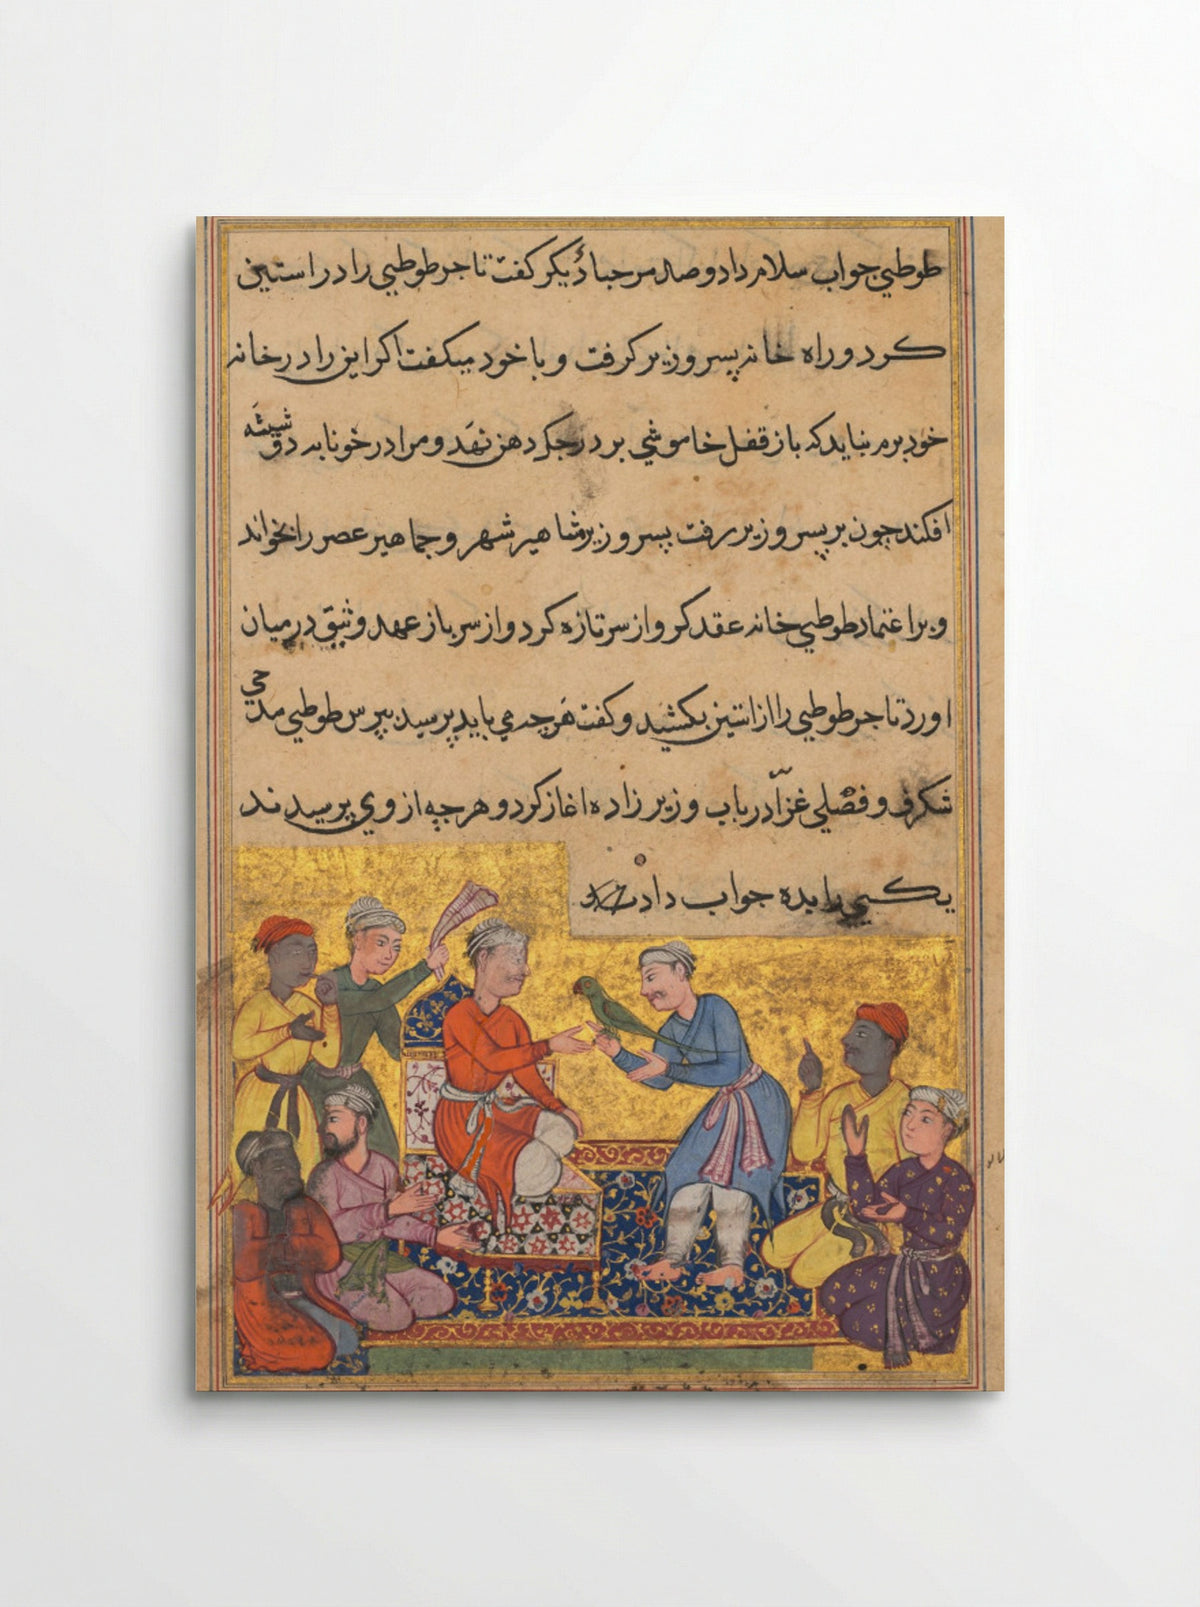 طوطي جواب سلام داد و صد مرحبا دیکر کفت تاجر طوطي را در استین
کرد و راه خانه پسر وزیر کرفت و با خود میکفت اکر این را در خانه
خود برم نباید که باز قفل خاموشي بر درجک دهن نهد و مرا در خونابه
افکند چون بر پسر وزیر رفت پسر وزیر مشاهیر شهر و جماهیر عصر را بخواند
و بر اعتماد طوطي خانه عقد کرو از سر تازه کرد و از سر باز عهد وثیق در میان
اورد تاجر طوطي را از استین بکشید و کفت هر چه مي باید پرسید بپرس طوطي مدحي
شکرف و فصلي غرّا در باب وزیرزاده اغاز کرد و هر چه از وي پرسیدند
یکي را بده جواب داد